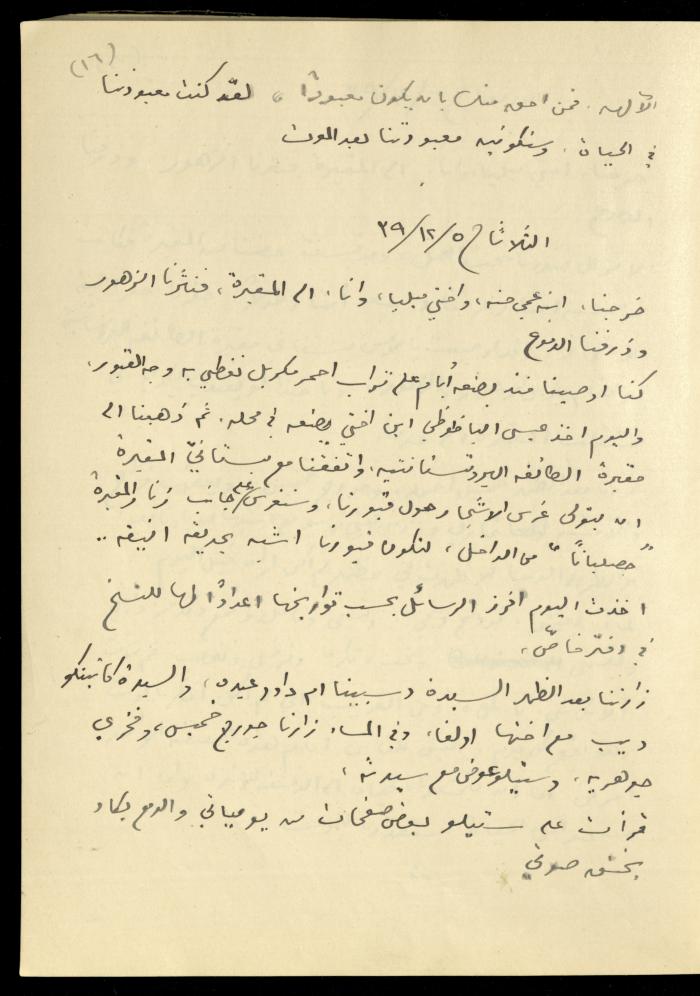 (١٦)
الآلهه. فمن احق منك بان يكون معبوداً، لقد كنت معبودتنا
في الحياة، وستكونين معبودتنا بعد الموت
الثلاثاء ٥/١٢/٣٩
خرجنا، ابنة عمي حنه، واختي ميليا، وانا، الى المقبرة، فنثرنا الزهور
وذرفنا الدموع
كنا اوصينا منذ بضعة أيام على تراب احمر مكربل نغطي به وجه القبور،
واليوم اخذ عيسى الياس طوطي ابن اختي يضعه في محله. ثم ذهبنا الى
مقبرة الطائفه البروتستانتيه، واتفقنا مع بستانيّ المقبرة
ان يتولى غرس الاشجار حول قبورنا، وسنغرس على جانب زنار المقبرة
"حصلباناً" من الداخل، لتكون قبورنا اشبه بحديقه انيقه..
اخذت اليوم افرز الرسائل بحسب تواريخها اعداداً لها للنسخ
في دفتر خاصّ،
زارتنا بعد الظهر السيدة وسبينا ام داود عبده، والسيدة كاتينكو
ديب مع اختها اولغا، وفي المساء زارنا جورج خميس، وفخري
جوهريه، وستيلو عوض مع سيدته،
قرأت على ستيلو بعض صفحات من يومياتي والدمع يكاد
يخنق صوتي